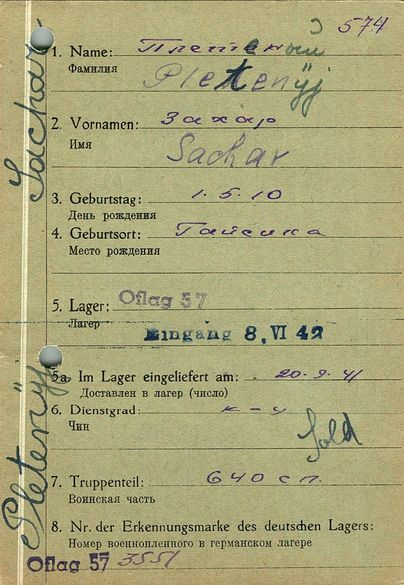 574
1. Name: Плетеный
Фамилия
Pletenyj
2. Vornamen: Захар
Имя
Sachar
3. Geburtstag: 1.5.10
День рождения
4. Geburtsort: Гайсинка
Место рождения
5. Lager: Oflag 57
Лагерь
Eingang 8. VI 42
5a. Im Lager eingeliefert am: 20-9-41
Доставлен в лагерь (число)
6. Dienstgrad: к-ц
Чин
Sold
7. Truppenteil: 640 сп
Воинская часть
8. Nr. der Erkennungsmarke des deutschen Lagers:
Номер военнопленного в германском лагере
Oflag 57 3551
Pletenyj Sachar